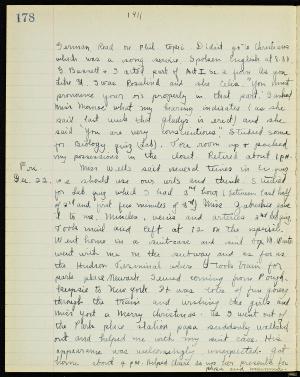 178
1911
German Read on Phil topic. Didn't go to Christians
which was a song service. Spoken English at 8:30
E Barrett + I acted part of Act I Sc 3 from As you
Like It. I was Rosalind and she Celia. "You must
pronounce your ors properly in that part." I asked
Miss Monroe what my bearing indicates (as she
said that made that gladys is erect) and she
said "You are very conscientious". Studied some
for Biology quiz (lab). Tore room up + packed
my possessions in the closet. Retired about 1 pm.
Fri Miss Wells said several times in her gym
Dec. 22. we should use our wits and think. Studied
for Lab quiz which I had 2nd hour (between last half
of 2nd and first few minutes of 3rd) Miss G. gave
it to me. Muscles, veins and arteries 2nd leg.
Took mail and left at 12 on the special.
Went home in a suit case and and
went with me on the subway and as far as
the Hudson Terminal where I took train for
park place Newark. I coming from Pough
keepsie to New York. It was lots of fun going
through the train and wishing the girls and
Miss York a Merry Christmas. As I went out of
the Park place station papa suddenly walked
out and helped me with my suit case. His
appearance was unexpected. got
home about 4 pm. Helped do up presents for